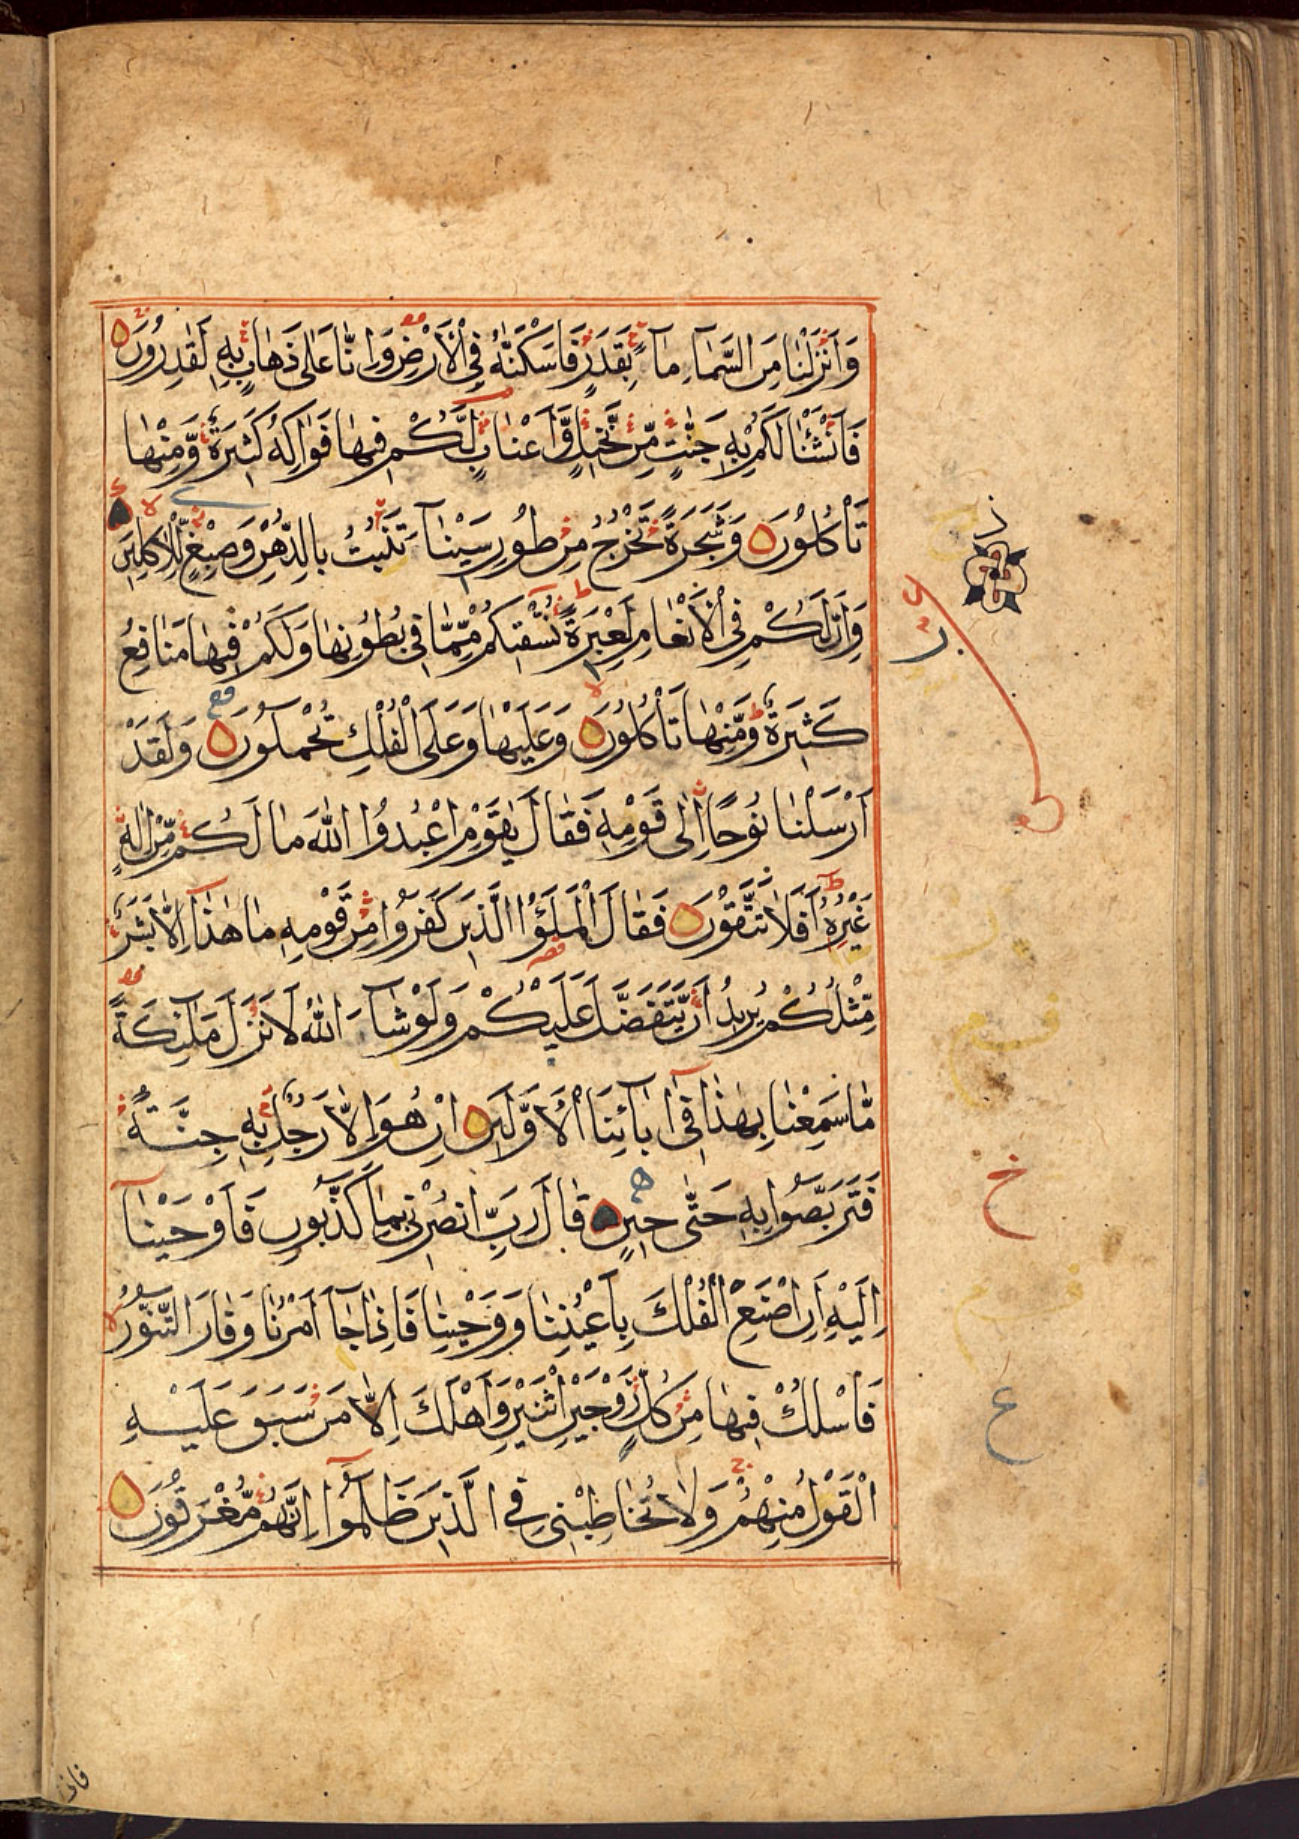 وَاَنْزَلْنَا مِنَ السَّمَآءِ مَآءً بِقَدَرٍ فَاَسْكَنّٰهُ فِي الْاَرْضِ وَاِنَّا عَلٰى ذَهَابٍ بِهٖ لَقٰدِرُوْنَ
فَاَنْشَاْنَا لَكُمْ بِهٖ جَنّٰتٍ مِّنْ نَّخِيْلٍ وَّاَعْنَابٍ لَّكُمْ فِيْهَا فَوَاكِهُ كَثِيْرَةٌ وَّمِنْهَا
تَاْكُلُوْنَ وَشَجَرَةً تَخْرُجُ مِنْ طُوْرِ سَيْنَآءَ تَنْۢبُتُ بِالدُّهْنِ وَصِبْغٍ لِّلْاٰكِلِيْنَ
وَاِنَّ لَكُمْ فِي الْاَنْعَامِ لَعِبْرَةً نُسْقِيْكُمْ مِّمَّا فِيْ بُطُوْنِهَا وَلَكُمْ فِيْهَا مَنَافِعُ
كَثِيْرَةٌ وَّمِنْهَا تَاْكُلُوْنَ وَعَلَيْهَا وَعَلَى الْفُلْكِ تُحْمَلُوْنَ وَلَقَدْ
اَرْسَلْنَا نُوْحًا اِلٰى قَوْمِهٖ فَقَالَ يٰقَوْمِ اعْبُدُوا اللّٰهَ مَا لَكُمْ مِّنْ اِلٰهٍ
غَيْرُهٗ اَفَلَا تَتَّقُوْنَ فَقَالَ الْمَلَؤُا الَّذِيْنَ كَفَرُوْا مِنْ قَوْمِهٖ مَا هٰذَا اِلَّا بَشَرٌ
مِّثْلُكُمْ يُرِيْدُ اَنْ يَّتَفَضَّلَ عَلَيْكُمْ وَلَوْ شَآءَ اللّٰهُ لَاَنْزَلَ مَلٰٓئِكَةً
مَّا سَمِعْنَا بِهٰذَا فِيْٓ اٰبَآئِنَا الْاَوَّلِيْنَ اِنْ هُوَ اِلَّا رَجُلٌ بِهٖ جِنَّةٌ
فَتَرَبَّصُوْا بِهٖ حَتّٰى حِيْنٍ قَالَ رَبِّ انْصُرْنِيْ بِمَا كَذَّبُوْنِ فَاَوْحَيْنَآ
اِلَيْهِ اَنِ اصْنَعِ الْفُلْكَ بِاَعْيُنِنَا وَوَحْيِنَا فَاِذَا جَآءَ اَمْرُنَا وَفَارَ التَّنُّوْرُ
فَاسْلُكْ فِيْهَا مِنْ كُلٍّ زَوْجَيْنِ اثْنَيْنِ وَاَهْلَكَ اِلَّا مَنْ سَبَقَ عَلَيْهِ
الْقَوْلُ مِنْهُمْ وَلَا تُخَاطِبْنِيْ فِي الَّذِيْنَ ظَلَمُوْا اِنَّهُمْ مُّغْرَقُوْنَ
خ
ع